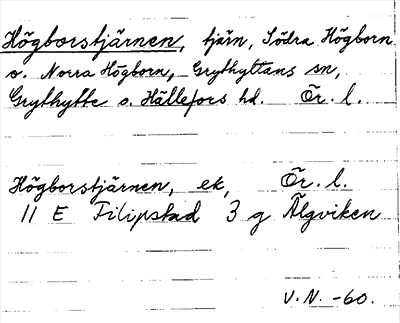 Högborstjärnen, tjärn, Södra Högborn
o. Norra Högborn, Grythyttans sn,
Grythytte o. Hällefors hd. Ör. l.
Högborstjärnen, ek, Ör. l.
11 E Filipstad 3 g Älgviken
V. N. -60.